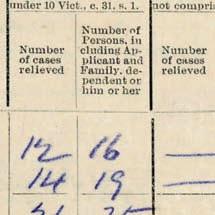 under 10 Vict., c. 31. s. 1.
not compri
Number of cases relieved
Number of Persons, in cluding Ap- plicant and Family, de- pendent on him or her
Number of cases relieved
12 16 —
14 19 —